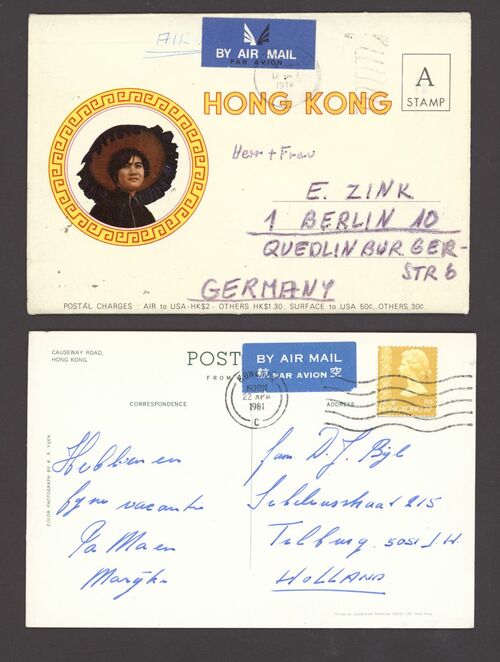 AIR
BY AIR MAIL
PAR AVION
A
STAMP
HONG KONG
Herr + Frau
E. ZINK
1 BERLIN 10
QUEDLINBURGER-
STR 6
GERMANY
POSTAL CHARGES : AIR to USA-HK$2 - OTHERS HK$1.30; SURFACE to USA 50¢, OTHERS 30¢
CAUSEWAY ROAD,
HONG KONG.
POST
FROM
BY AIR MAIL
航 PAR AVION 空
22 APR
1981
C
HONG KONG
CORRESPONDENCE
ADDRESS
COLOR PHOTOGRAPH BY K. P. YUEN
Hebben een
fijne vacantie
Pa Ma en
Marijke
fam D. J. Bijl
Sibeliusstraat 215
Tilburg. 5051 J.H.
HOLLAND